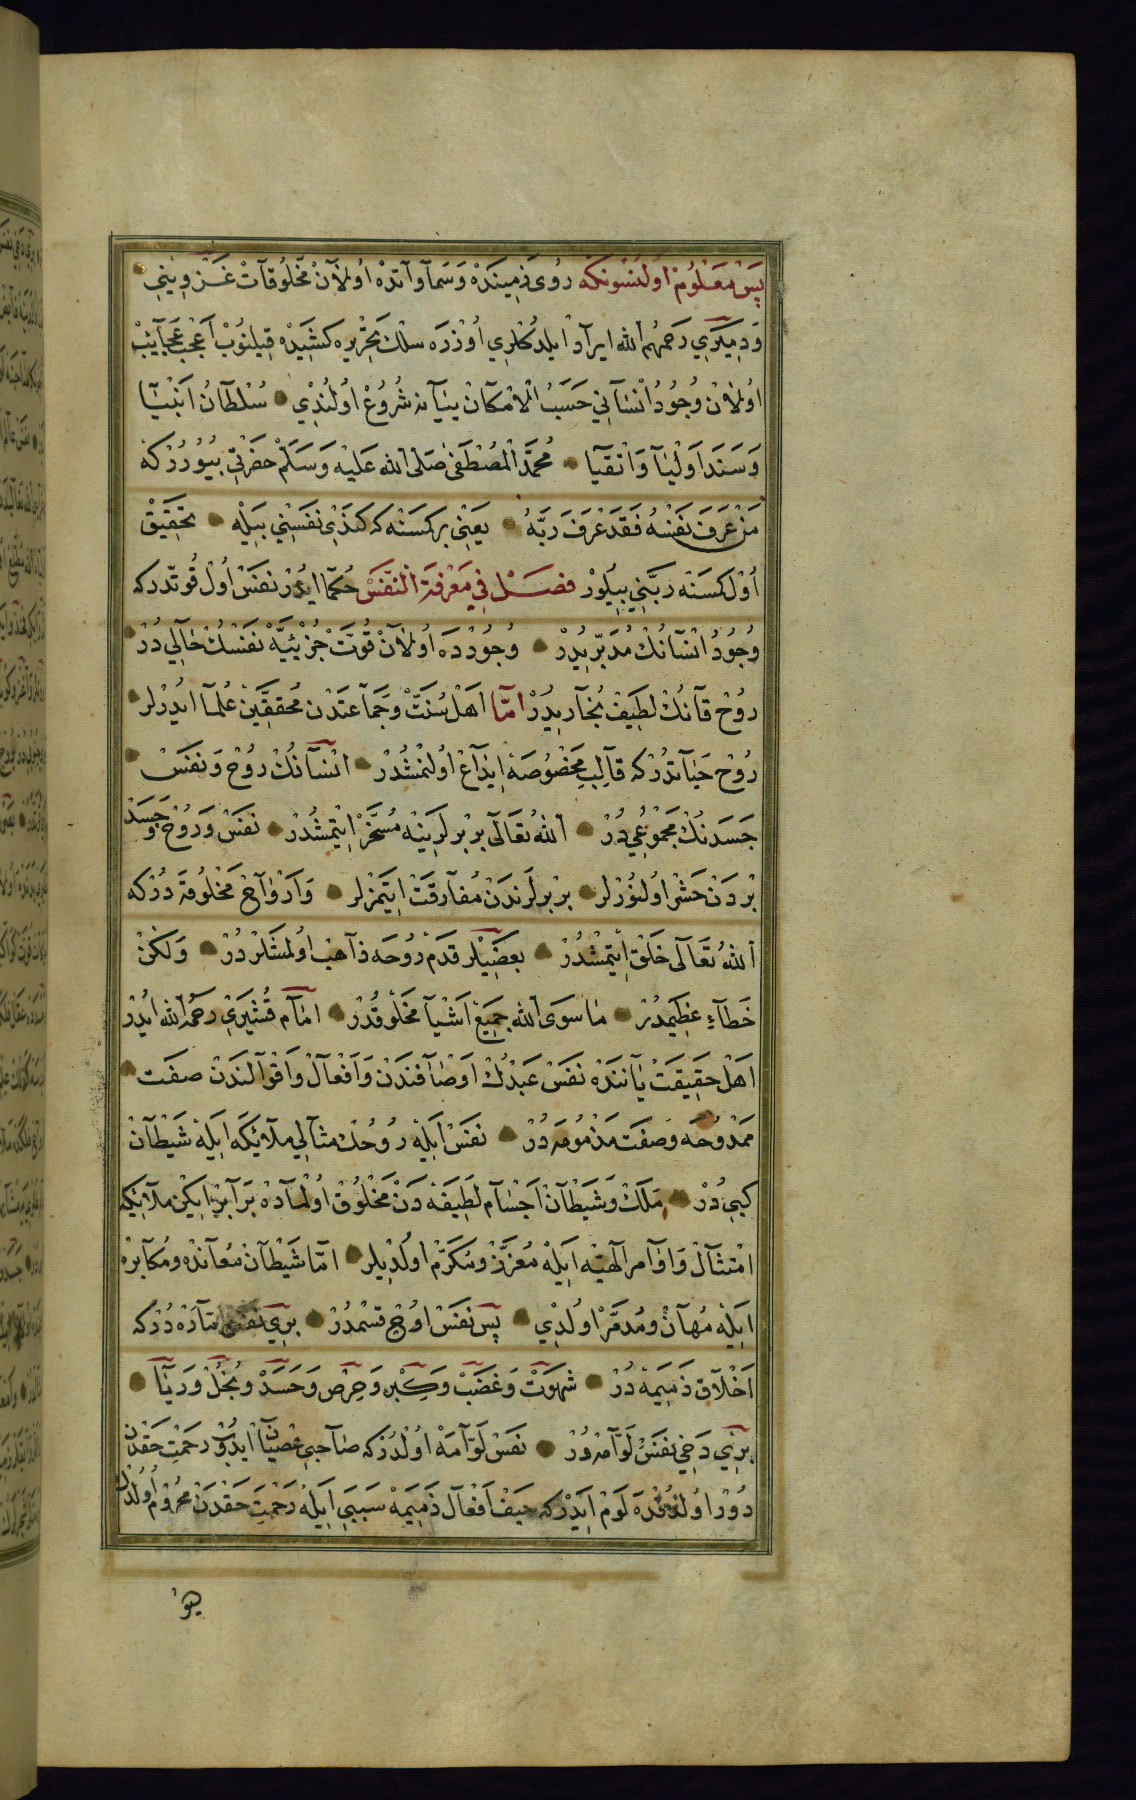 پس معلوم اولنسونكه روی زمینده و سماواتده اولان مخلوقات غزوینی
و دمیری رحمهم الله ایراد ایلدكلری اوزره سلك تحریره كشیده قیلنوب اعجب عجایب
اولان وجود انسانی حسب الامكان بیانه شروع اولندی سلطان انبیا
و سند اولیا و اتقیا محمد المصطفی صلی الله علیه وسلم حضرتی بیورر كه
من عرف نفسه فقد عرف ربه یعنی بر كسنه كه كندی نفسنی بیله تحقیق
اول كسنه ربنی بیلور فصل فی معرفة النفس حكما ایدر نفس اول قوتدر كه
وجود انسانك مدبریدر وجودده اولان قوت جزئیه نفسك حالی در
روح قانك لطیف بخاریدر اما اهل سنت و جماعتدن محققین علما ایدرلر
روح حیاتدر كه قالب مخصوصه ایداع اولنمشدر انسانك روح و نفس
جسدنك مجموعی در الله تعالی بر برلرینه مسخر ایتمشدر نفس و روح و جسد
بردن حشر اولنورلر بر برلرندن مفارقت ایتمزلر و ارواح مخلوقه در كه
الله تعالی خلق ایتمشدر بعضیلر قدم روحه ذاهب اولمشلر در ولكن
خطاء عظیمدر ما سوی الله جمیع اشیا مخلوقدر امام قشیری رحمه الله ایدر
اهل حقیقت یاننده نفس عبدك اوصافندن و افعال و اقوالندن صفت
ممدوحه و صفت مذمومه در نفس ایله روحك مثالی ملائكه ایله شیطان
كبی در ملك و شیطان اجسام لطیفه دن مخلوق اولماده برابر ایكن ملائكه
امتثال و اوامر الهیه ایله معزز و مكرم اولدیلر اما شیطان معانده و مكابره
ایله مهان و مدمر اولدی پس نفس اوچ قسمدر بری نفس اماره در كه
اخلاق ذمیمه در شهوت و غضب و كبر و حرص و حسد و بخل و ریا
بری دخی نفس لوامه در نفس لوامه اولدر كه صاحبی عصیان ایدوب رحمت حقدن
دور اولدقده لوم ایدر كه حیف افعال ذمیمه سببی ایله رحمت حقدن محروم اولدك
یو